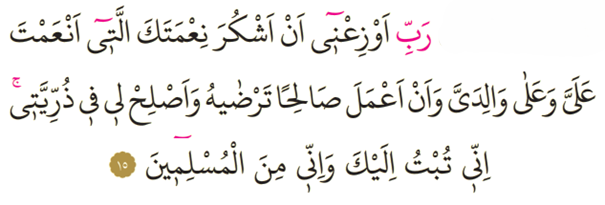 رَبِّ اَوْزِعْنٖٓي اَنْ اَشْكُرَ نِعْمَتَكَ الَّتٖٓي اَنْعَمْتَ
عَلَيَّ وَعَلٰى وَالِدَيَّ وَاَنْ اَعْمَلَ صَالِحًا تَرْضٰيهُ وَاَصْلِحْ لٖي فٖي ذُرِّيَّتٖيۚ
اِنّٖي تُبْتُ اِلَيْكَ وَاِنّٖي مِنَ الْمُسْلِمٖينَ ١٥